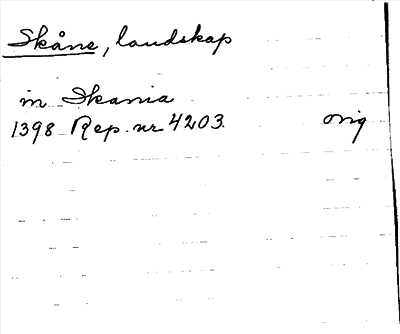 Skåne, landskap
in Skania
1398 Rep. nr 4203. orig